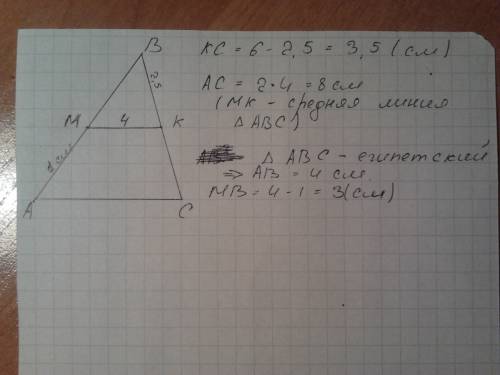 B
2,5
M
4
K
1 см
A
C
KC = 6 - 2,5 = 3,5 (см)
AC = 2·4 = 8 см
(MK - средняя линия
△ ABC)
△ ABC - египетский
⇒ AB = 4 см
MB = 4 - 1 = 3 (см)